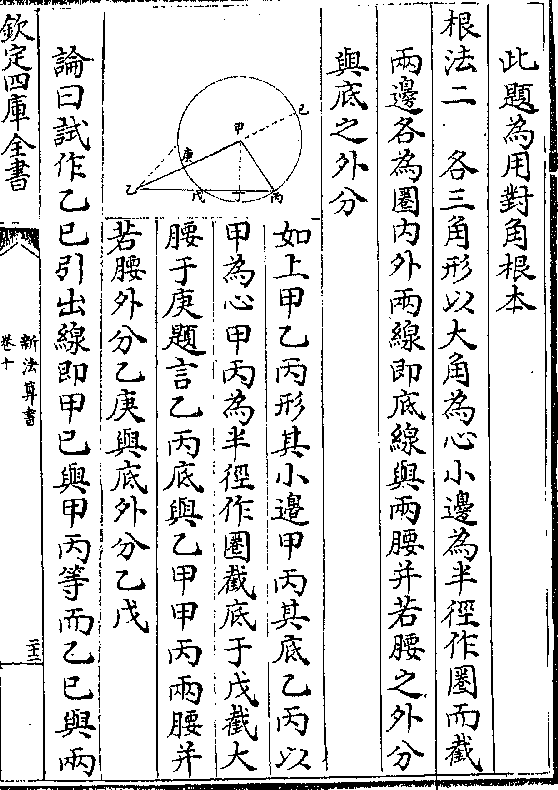 此題為用對角根本
根法二　各三角形以大角為心小邊為半徑作圏而截
兩邊各為圏内外兩線即底線與兩腰并若腰之外分
與底之外分
如上甲乙丙形其小邊甲丙其底乙丙以
甲為心甲丙為半徑作圏截底于戊截大
腰于庚題言乙丙底與乙甲甲丙兩腰并
若腰外分乙庚與底外分乙戊
己
甲
庚
乙
戊
丁
丙
論曰試作乙已引出線即甲已與甲丙等而乙已與兩
欽定四庫全書
新法算書
卷十
二十三